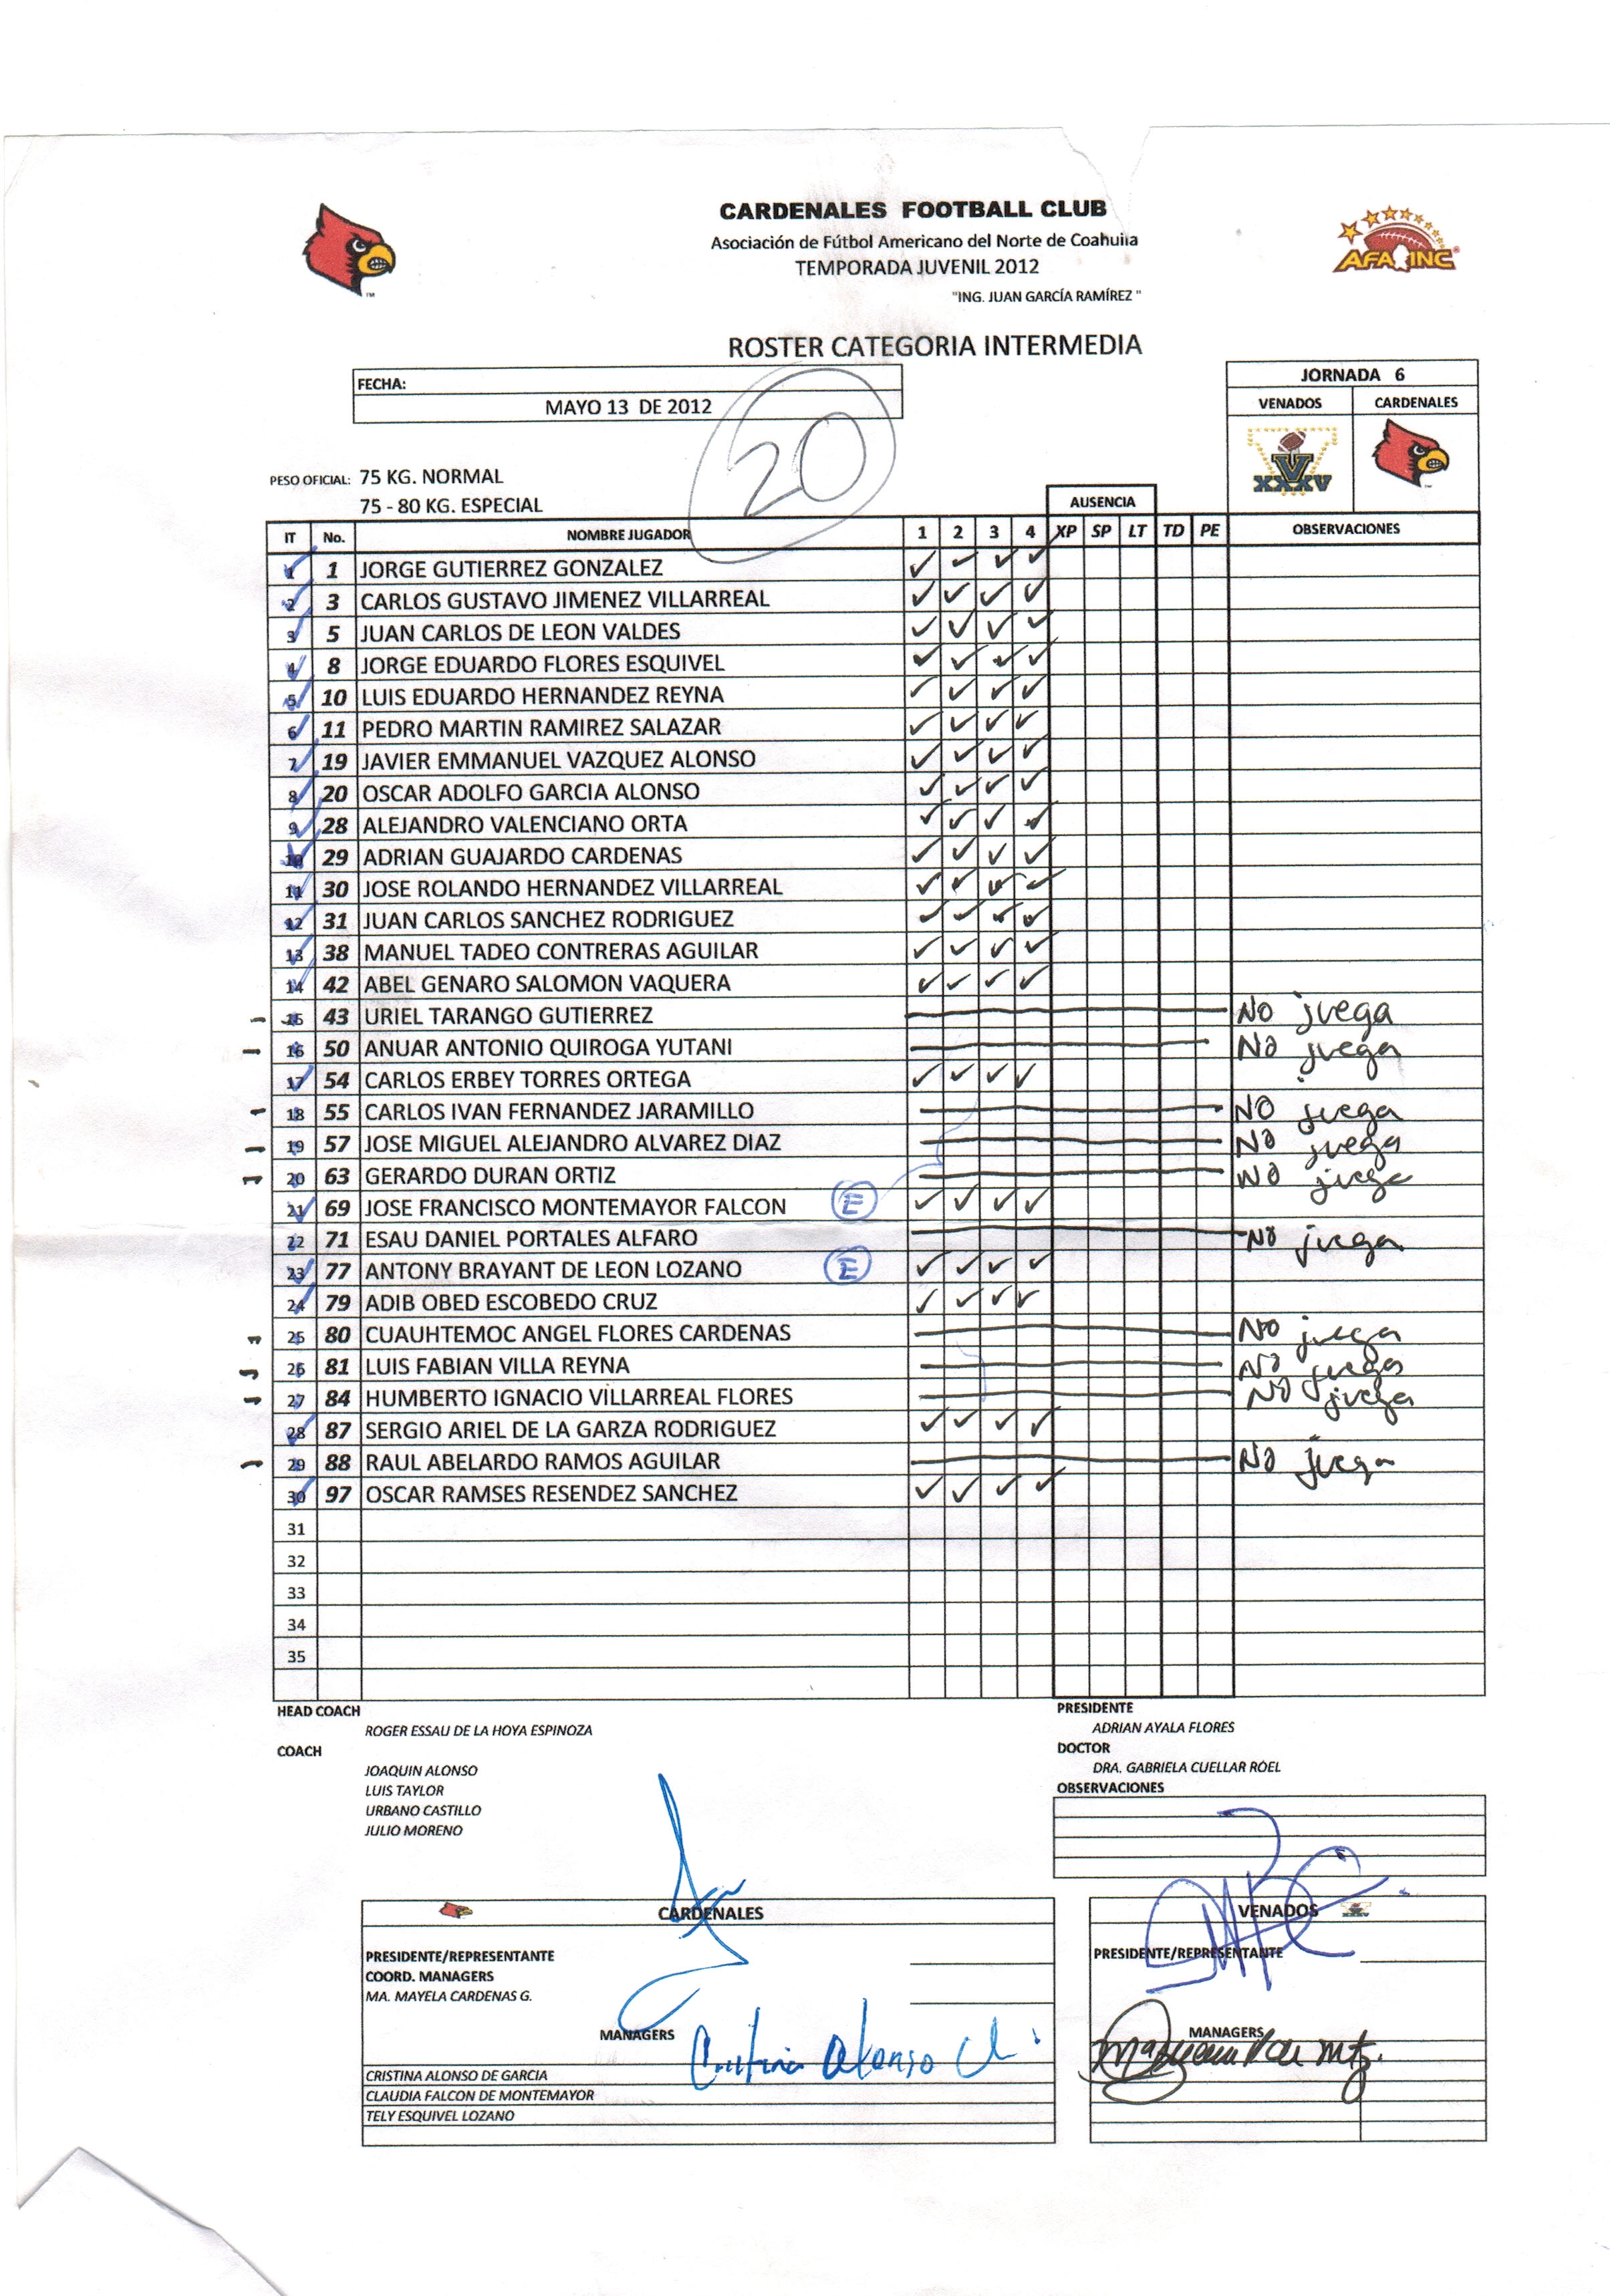 CARDENALES FOOTBALL CLUB
Asociación de Fútbol Americano del Norte de Coahuila
TEMPORADA JUVENIL 2012
"ING. JUAN GARCÍA RAMÍREZ "
AFA INC
ROSTER CATEGORIA INTERMEDIA
FECHA:
MAYO 13 DE 2012
20
JORNADA 6
VENADOS CARDENALES
V
XXXV
PESO OFICIAL: 75 KG. NORMAL
75 - 80 KG. ESPECIAL
AUSENCIA
IT No. NOMBRE JUGADOR 1 2 3 4 XP SP LT TD PE OBSERVACIONES
1 1 JORGE GUTIERREZ GONZALEZ ✓ ✓ ✓ ✓
2 3 CARLOS GUSTAVO JIMENEZ VILLARREAL ✓ ✓ ✓ ✓
3 5 JUAN CARLOS DE LEON VALDES ✓ ✓ ✓ ✓
4 8 JORGE EDUARDO FLORES ESQUIVEL ✓ ✓ ✓ ✓
5 10 LUIS EDUARDO HERNANDEZ REYNA ✓ ✓ ✓ ✓
6 11 PEDRO MARTIN RAMIREZ SALAZAR ✓ ✓ ✓ ✓
7 19 JAVIER EMMANUEL VAZQUEZ ALONSO ✓ ✓ ✓ ✓
8 20 OSCAR ADOLFO GARCIA ALONSO ✓ ✓ ✓ ✓
9 28 ALEJANDRO VALENCIANO ORTA ✓ ✓ ✓ ✓
10 29 ADRIAN GUAJARDO CARDENAS ✓ ✓ ✓ ✓
11 30 JOSE ROLANDO HERNANDEZ VILLARREAL ✓ ✓ ✓ ✓
12 31 JUAN CARLOS SANCHEZ RODRIGUEZ ✓ ✓ ✓ ✓
13 38 MANUEL TADEO CONTRERAS AGUILAR ✓ ✓ ✓ ✓
14 42 ABEL GENARO SALOMON VAQUERA ✓ ✓ ✓ ✓
15 43 URIEL TARANGO GUTIERREZ No juega
16 50 ANUAR ANTONIO QUIROGA YUTANI No juega
17 54 CARLOS ERBEY TORRES ORTEGA ✓ ✓ ✓ ✓
18 55 CARLOS IVAN FERNANDEZ JARAMILLO No juega
19 57 JOSE MIGUEL ALEJANDRO ALVAREZ DIAZ No juega
20 63 GERARDO DURAN ORTIZ No juega
21 69 JOSE FRANCISCO MONTEMAYOR FALCON E ✓ ✓ ✓ ✓
22 71 ESAU DANIEL PORTALES ALFARO No juega
23 77 ANTONY BRAYANT DE LEON LOZANO E ✓ ✓ ✓ ✓
24 79 ADIB OBED ESCOBEDO CRUZ ✓ ✓ ✓ ✓
25 80 CUAUHTEMOC ANGEL FLORES CARDENAS No juega
26 81 LUIS FABIAN VILLA REYNA No juega
27 84 HUMBERTO IGNACIO VILLARREAL FLORES No juega
28 87 SERGIO ARIEL DE LA GARZA RODRIGUEZ ✓ ✓ ✓ ✓
29 88 RAUL ABELARDO RAMOS AGUILAR No juega
30 97 OSCAR RAMSES RESENDEZ SANCHEZ ✓ ✓ ✓ ✓
31
32
33
34
35
HEAD COACH
ROGER ESSAU DE LA HOYA ESPINOZA
COACH
JOAQUIN ALONSO
LUIS TAYLOR
URBANO CASTILLO
JULIO MORENO
PRESIDENTE
ADRIAN AYALA FLORES
DOCTOR
DRA. GABRIELA CUELLAR ROEL
OBSERVACIONES
CARDENALES
PRESIDENTE/REPRESENTANTE
COORD. MANAGERS
MA. MAYELA CARDENAS G.
MANAGERS
Cristina Alonso
CRISTINA ALONSO DE GARCIA
CLAUDIA FALCON DE MONTEMAYOR
TELY ESQUIVEL LOZANO
VENADOS
XXXV
PRESIDENTE/REPRESENTANTE
MANAGERS